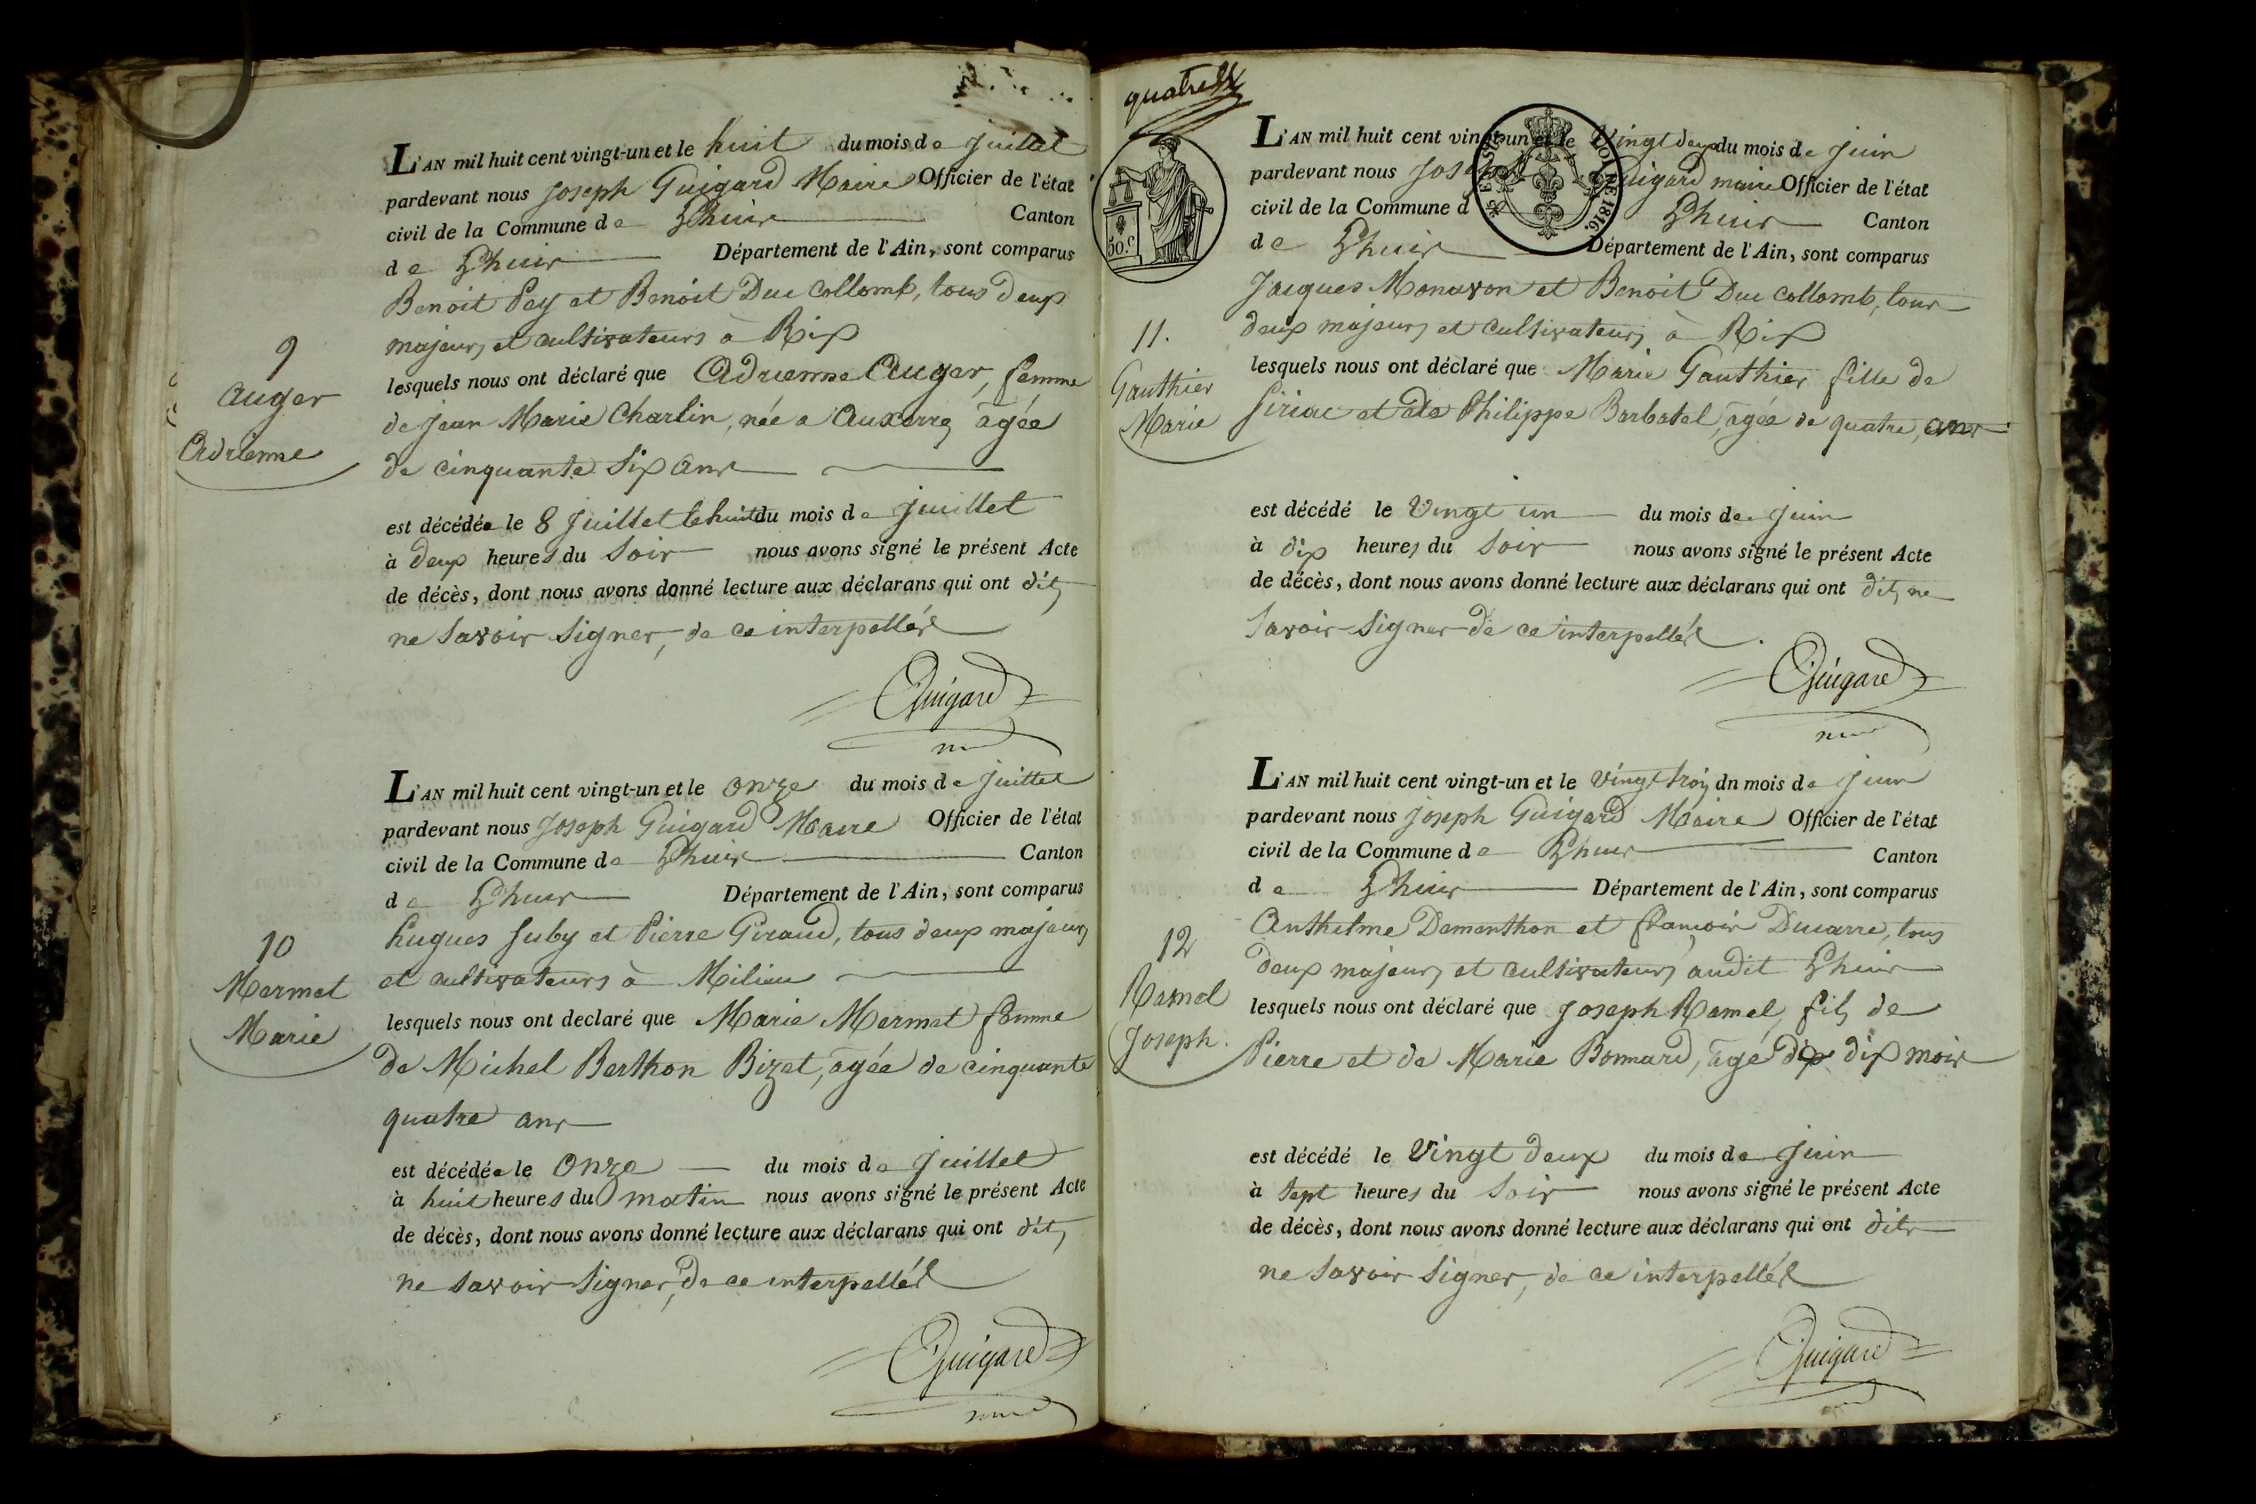 L'AN mil huit cent vingt-un et le huit du mois de juillet
pardevant nous Joseph Guigard Maire Officier de l'état
civil de la Commune de Lhuis Canton
de Lhuis Département de l'Ain, sont comparus
Benoit Pey et Benoit Duc Collomb, tous deux
majeurs et cultivateurs à Rix
9
Auger
Adrienne
lesquels nous ont déclaré que Adrienne Auger, femme
de Jean Marie Charlin, née a Auxerre, âgée
de cinquante six ans
est décédée le 8 Juillet le huit du mois de juillet
à deux heures du Soir nous avons signé le présent Acte
de décès, dont nous avons donné lecture aux déclarans qui ont dits
ne Savoir Signer, de ce interpellés
Guigard
L'AN mil huit cent vingt-un et le onze du mois de juillet
pardevant nous Joseph Guigard Maire Officier de l'état
civil de la Commune de Lhuis Canton
de Lhuis Département de l'Ain, sont comparus
hugues Juby et Pierre Giraud, tous deux majeurs
et cultivateurs à Milieu
10
Mermet
Marie
lesquels nous ont declaré que Marie Mermet femme
de Michel Berthon Bizet, âgée de cinquante
quatre ans
est décédée le Onze du mois de Juillet
à huit heures du matin nous avons signé le présent Acte
de décès, dont nous avons donné lecture aux déclarans qui ont dits
ne savoir Signer, de ce interpellés
Guigard
quatre
50 c.
LOI DE 1816.
L'AN mil huit cent vingt-un et le Vingt deux du mois de juin
pardevant nous Joseph Guigard maire Officier de l'état
civil de la Commune d Lhuis Canton
de Lhuis Département de l'Ain, sont comparus
Jacques Monavon et Benoit Duc Collomb, tous
deux majeurs et cultivateurs à Rix
11.
Gauthier
Marie
lesquels nous ont déclaré que Marie Gauthier fille de
Siriac et de Philippe Barbatel, âgée de quatre, ans
est décédé le Vingt un du mois de juin
à dix heures du Soir nous avons signé le présent Acte
de décès, dont nous avons donné lecture aux déclarans qui ont dits ne
Savoir Signer de ce interpellés
Guigard
L'AN mil huit cent vingt-un et le vingt trois dn mois de juin
pardevant nous Joseph Guigard Maire Officier de l'état
civil de la Commune de Lhuis Canton
de Lhuis Département de l'Ain, sont comparus
Anthelme Demanthon et françois Ducarre, tous
deux majeurs et cultivateurs audit Lhuis
12
Ramel
Joseph.
lesquels nous ont déclaré que Joseph Ramel, fils de
Pierre et de Marie Bonnard, âgé dix mois
est décédé le Vingt deux du mois de Juin
à Sept heures du Soir nous avons signé le présent Acte
de décès, dont nous avons donné lecture aux déclarans qui ont dits
ne Savoir Signer, de ce interpellés
Guigard